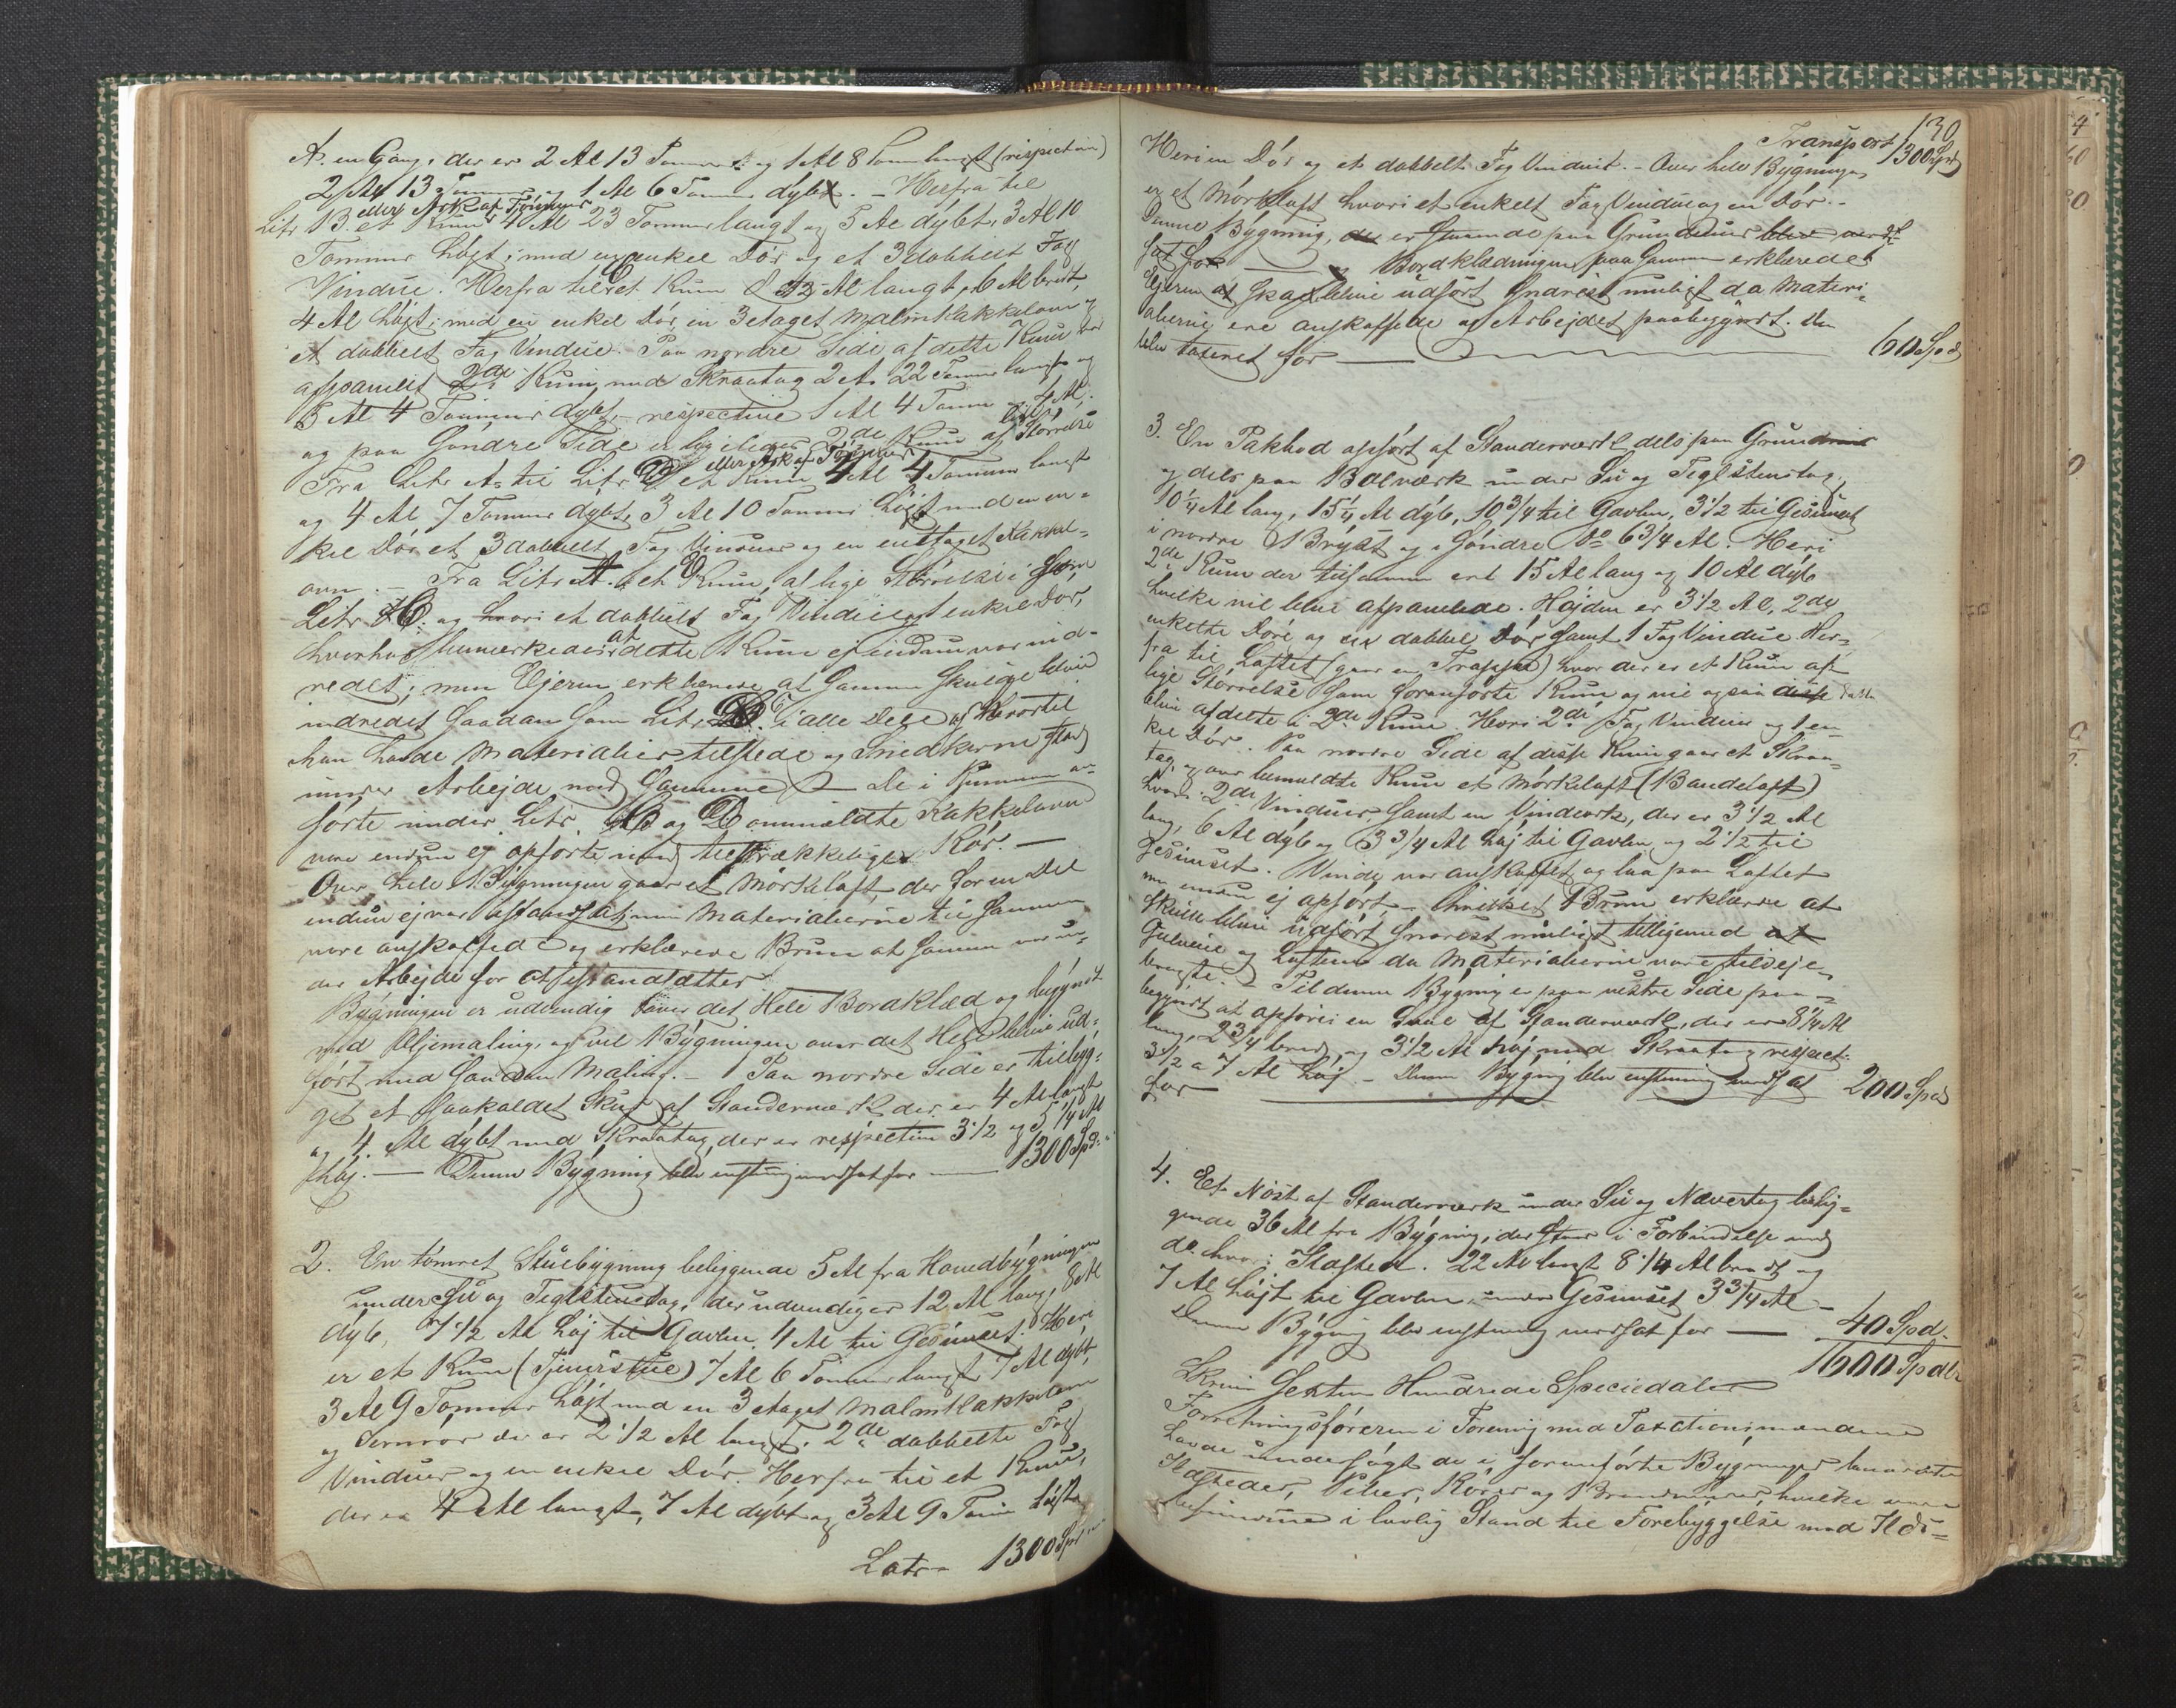 A. en Gang, der er 2 Al 13 Tommer og 1 Al 8 Tom langt (respective)
2 Al 13 Tommer og 1 Al 6 Tom dybt. – Herfra til
eller Ark af Tømmer
Litr B. et Rum 4 Al 23 Tommer langt og 5 Al dybt, 3 Al 10
Tommer højt; med en enkel Dør og et 3 dobbelt Fag
Vindue. Herfra til et Rum Al langt, 6 Al bredt,
4 Al højt; med en enkel Dør, en 3 etages Malmkakkelovn og
et dobbelt Fag Vindue. Paa nordre Side af dette Rum er
afpanelet 2de Rum, med Skraatag 2 Al 22 Tommer langt og
5 Al 4 Tommer dybt, respective 1 Al 4 Tomm og 4 Al;
og paa søndre Side er ligeledes 2de Rum af lige Størrelse
eller Ark af Tømmer
Fra Litr A. til Litr D et Rum 4 Al 4 Tommer langt
og 4 Al 7 Tommer dybt, 3 Al 10 Tommer højt med en en-
kel Dør, et 3 dobbelt Fag Vinduer og en etages Kakkel-
ovn. – Fra Litr A. et Rum, af lige Størrelse som
Litr og hvori et dobbelt Fag Vindue og 1 enkel Dør,
hvorhos bemærkedes at dette Rum ej endnu var ind-
redet; men Ejeren erklærede at samme skulde blive
indredet saadan som Litr D. i alle Dele og hvortil
han havde Materialier tilstede og Snedkerne stod
under Arbejde med samme – De i Rummene an-
førte under Litr B og D ommeldte Kakkelovne
vare endnu ej opførte med tilstrækkelige Rør. –
Over hele Bygningen gaar et Mørkeloft, der for en Del
endnu ej var istandsat, men Materialierne til samme
vare anskaffede og erklærede Brun at samme var un-
der Arbejde for at istandsættes
Bygningen er udvendig over det Hele Bordklæd og begyndt
med Oljemaling, og vil Bygningen over det Hele blive ud-
ført med saadan Maling. – Paa nordre Side er tilbyg-
get et saakaldet Skur af Standerværk der er 4 Al langt
og 4 Al dybt med Skraatag, der er respective 3 1/2 og 5 1/4 Al
høj. – Denne Bygning blev enstemmig værdsat for – 1300 Spd.
2. En tømret Stuebygning beliggende 5 Al fra Hovedbygningen
under Su og Teglsteenstag, der udvendig er 12 Al lang, 8 Al
dyb, 7 1/2 Al høj til Gavlen, 4 Al til Gesimset. Heri
er et Rum (Tjenerstue) 7 Al 6 Tommer langt, 7 Al dybt,
3 Al 9 Tommer højt med en 3 etages Malmkakkelovn
og der er 2 1/2 Al langt. 2de dobbelte Fag
Vinduer og en enkel Dør. Herfra til et Rum,
der er 4 Al langt, 7 Al dybt og 3 Al 9 Tom højt
Latr – 1300 Spd
130
Transport 1300 Spd
Heri en Dør og et dobbelt Fag Vinduer. – Over hele Bygningen
er et Mørkloft hvori et enkelt Fag Vindue og en Dør. –
Denne Bygning, der er staaende paa Grundmur blev værd-
sat for – Bordklædningen paa samme erklærede
Ejeren at skal blive udført snarest muligt da Materi-
alierne ere anskaffede og Arbejdet paabegyndt. Den
blev taxeret for – 60 Spd
3. En Pakbod opført af Standerværk dels paa Grundmur
og dels paa Bolværk under Su og Teglstenstag,
10 1/4 Al lang, 15 1/4 Al dyb, 10 3/4 til Gavlen, 3 1/2 til Gesimset
i nordre Bryst og i søndre Do 6 3/4 Al. Heri
2de Rum der tilsammen ere 15 Al lang og 10 Al dyb
hvilke vil blive afpanelede. Højden er 3 1/2 Al, 2de
enkelte Døre og en dobbel Dør samt 1 Fag Vindue Her-
fra til Loftet (gaar en Trappe) hvor der er et Rum af
lige Størrelse som foranførte Rum og vil ogsaa dette
blive afdelt i 2de Rum. Heri 2de Fag Vinduer og 1 en-
kel Dør. Paa nordre Side af disse Rum gaar et Skraa-
tag, og over bemeldte Rum et Mørkeloft (Bandeloft)
hvori 2de Vinduer, samt en Vindeark, der er 3 1/2 Al
lang, 6 Al dyb og 3 3/4 Al høj til Gavlen og 2 1/2 til
Gesimset. Vinde var anskaffet og laa paa Loftet
men endnu ej opført, hvilket Brun erklærede at
skulle blive udført snarest muligt tilligemed
Gulvene og Lofterne da Materialierne vare tilveje-
bragte. – Til denne Bygning er paa vestre Side paa-
begyndt at opføre en Sval af Standerværk, der er 8 1/4 Al
lang, 2 3/4 bred, og 3 1/2 Al høj med Skraatag respect.
3 1/2 a 7 Al høj. – Denne Bygning blev enstemmig værdsat
for – 200 Spd
4. Et Nøst af Standerværk under Su og Nævertag belig-
gende 36 Al fra Bygning, der staar i Forbindelse med
do hvori Ildsted. 22 Al langt 8 1/4 Al bredt og
7 Al højt til Gavlen, under Gesimset 3 3/4 Al –
Denne Bygning blev enstemmig værdsat for – 40 Spd.
1600 Spdlr
Skriver Sexten Hundrede Speciedaler
Forretningsføreren i Forening med Taxationsmændene
havde undersøgt de i foranførte Bygninger værende
Ildsteder, Piber, Rører og Brandmure, hvilke vare
befundne i lovlig Stand til Forebyggelse mod Ilds-